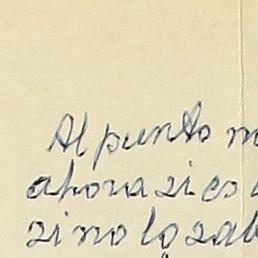 Al punto m
ahora zi es
zi no lo zab